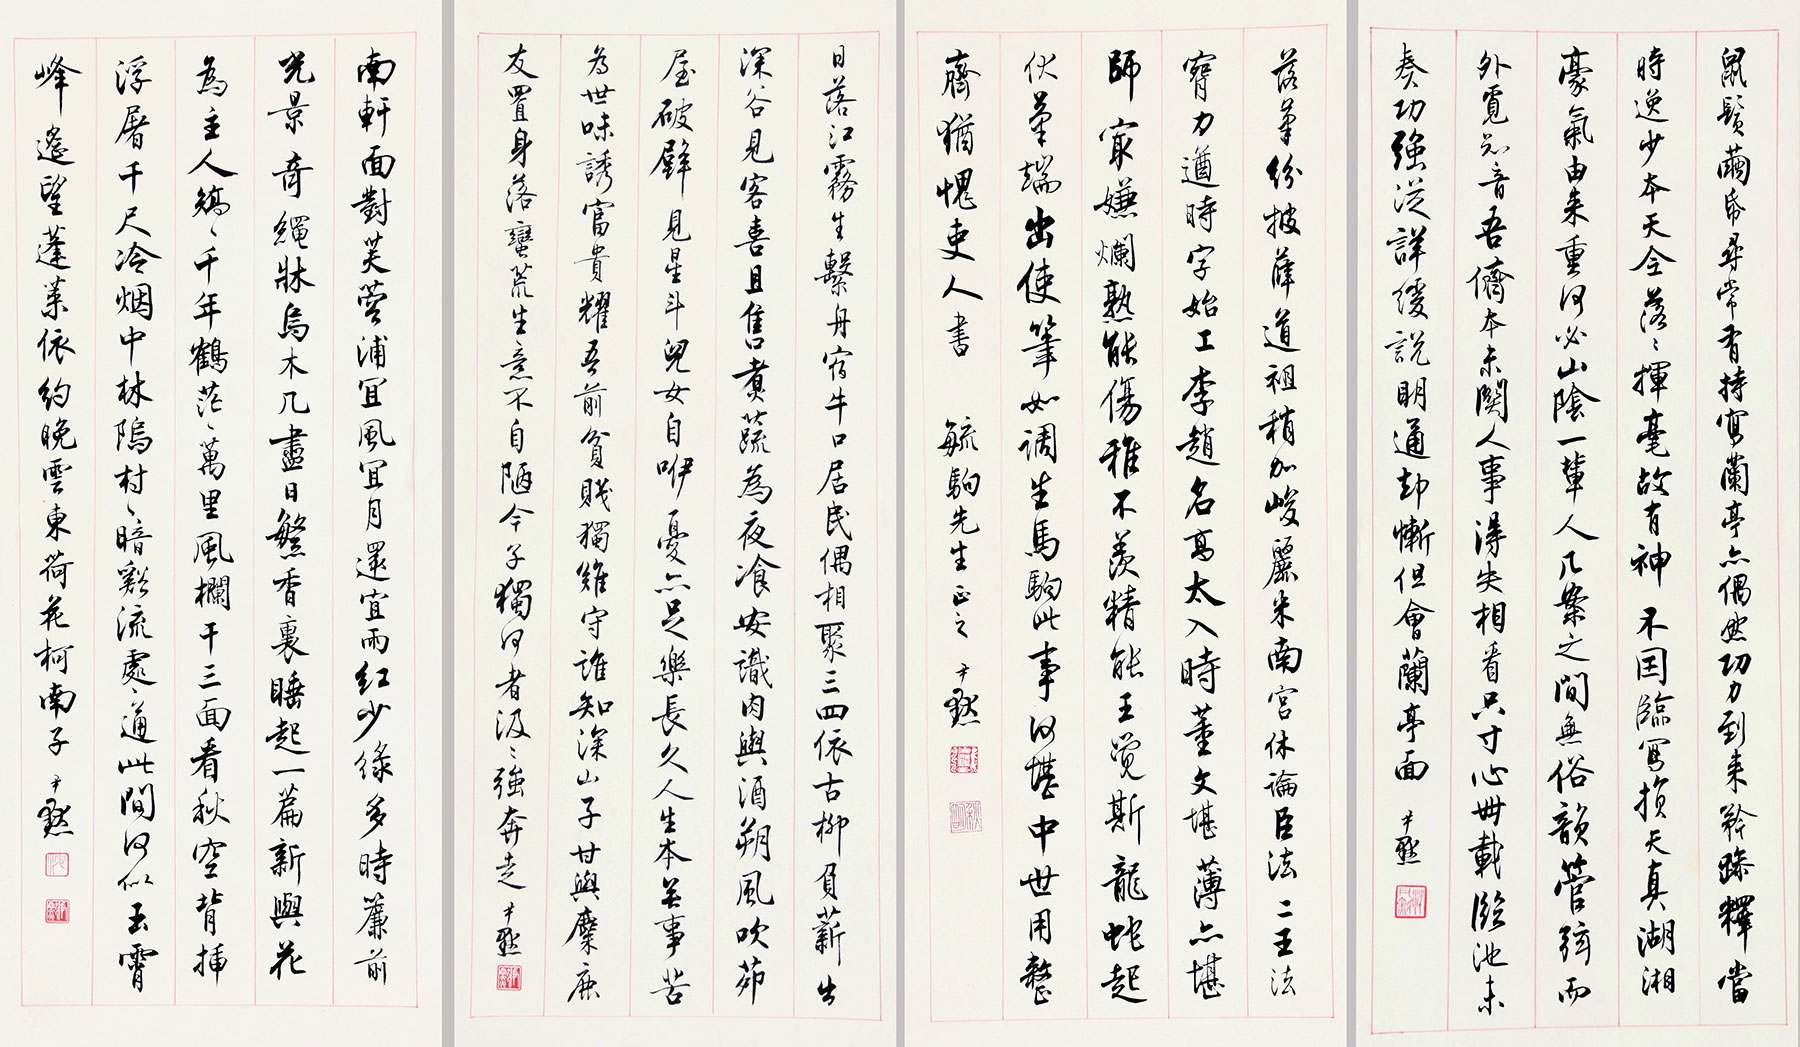 鼠鬚繭帋尋常有持寫蘭亭亦偶然功力到来矜躁釋當
時逸少本天全落〻揮毫故有神不因臨寫損天真湖湘
豪氣由来重何必山陰一輩人几案之間無俗韻管弦而
外覓知音吾儕本未關人事得失相看只寸心卌載臨池未
奏功強從詳緩說明通却慚但會蘭亭面 尹默
落筆紛披薛道祖稍加峻麗米南宮休論臣法二王法
膂力遒時字始工李趙名高太入時董文堪薄亦堪
師㝡嫌爛熟能傷雅不羨精能王覺斯龍蛇起
伏筆端出使筆如調生馬駒此事何堪中世用整
齊猶愧吏人書 毓駒先生正之 尹默
日落江霧生繫舟宿牛口居民偶相聚三四依古柳負薪出
深谷見客喜且售煮蔬為夜飡安識肉與酒朔風吹茆
屋破壁見星斗兒女自咿嚘亦足樂長久人生本無事苦
為世味誘富貴耀吾前貧賤獨難守誰知深山子甘與麋鹿
友置身落蠻荒生意不自陋今予獨何者汲〻強奔走 尹默
南軒面對芙蓉浦宜風宜月還宜雨紅少綠多時簾前
光景奇繩牀烏木几盡日繁香裏睡起一篇新與花
為主人矯〻千年鶴茫〻萬里風欄干三面看秋空背插
浮屠千尺冷烟中林隖村〻暗谿流處〻通此間何似玉霄
峰遙望蓬萊依約晚雲東荷花柯南子 尹默